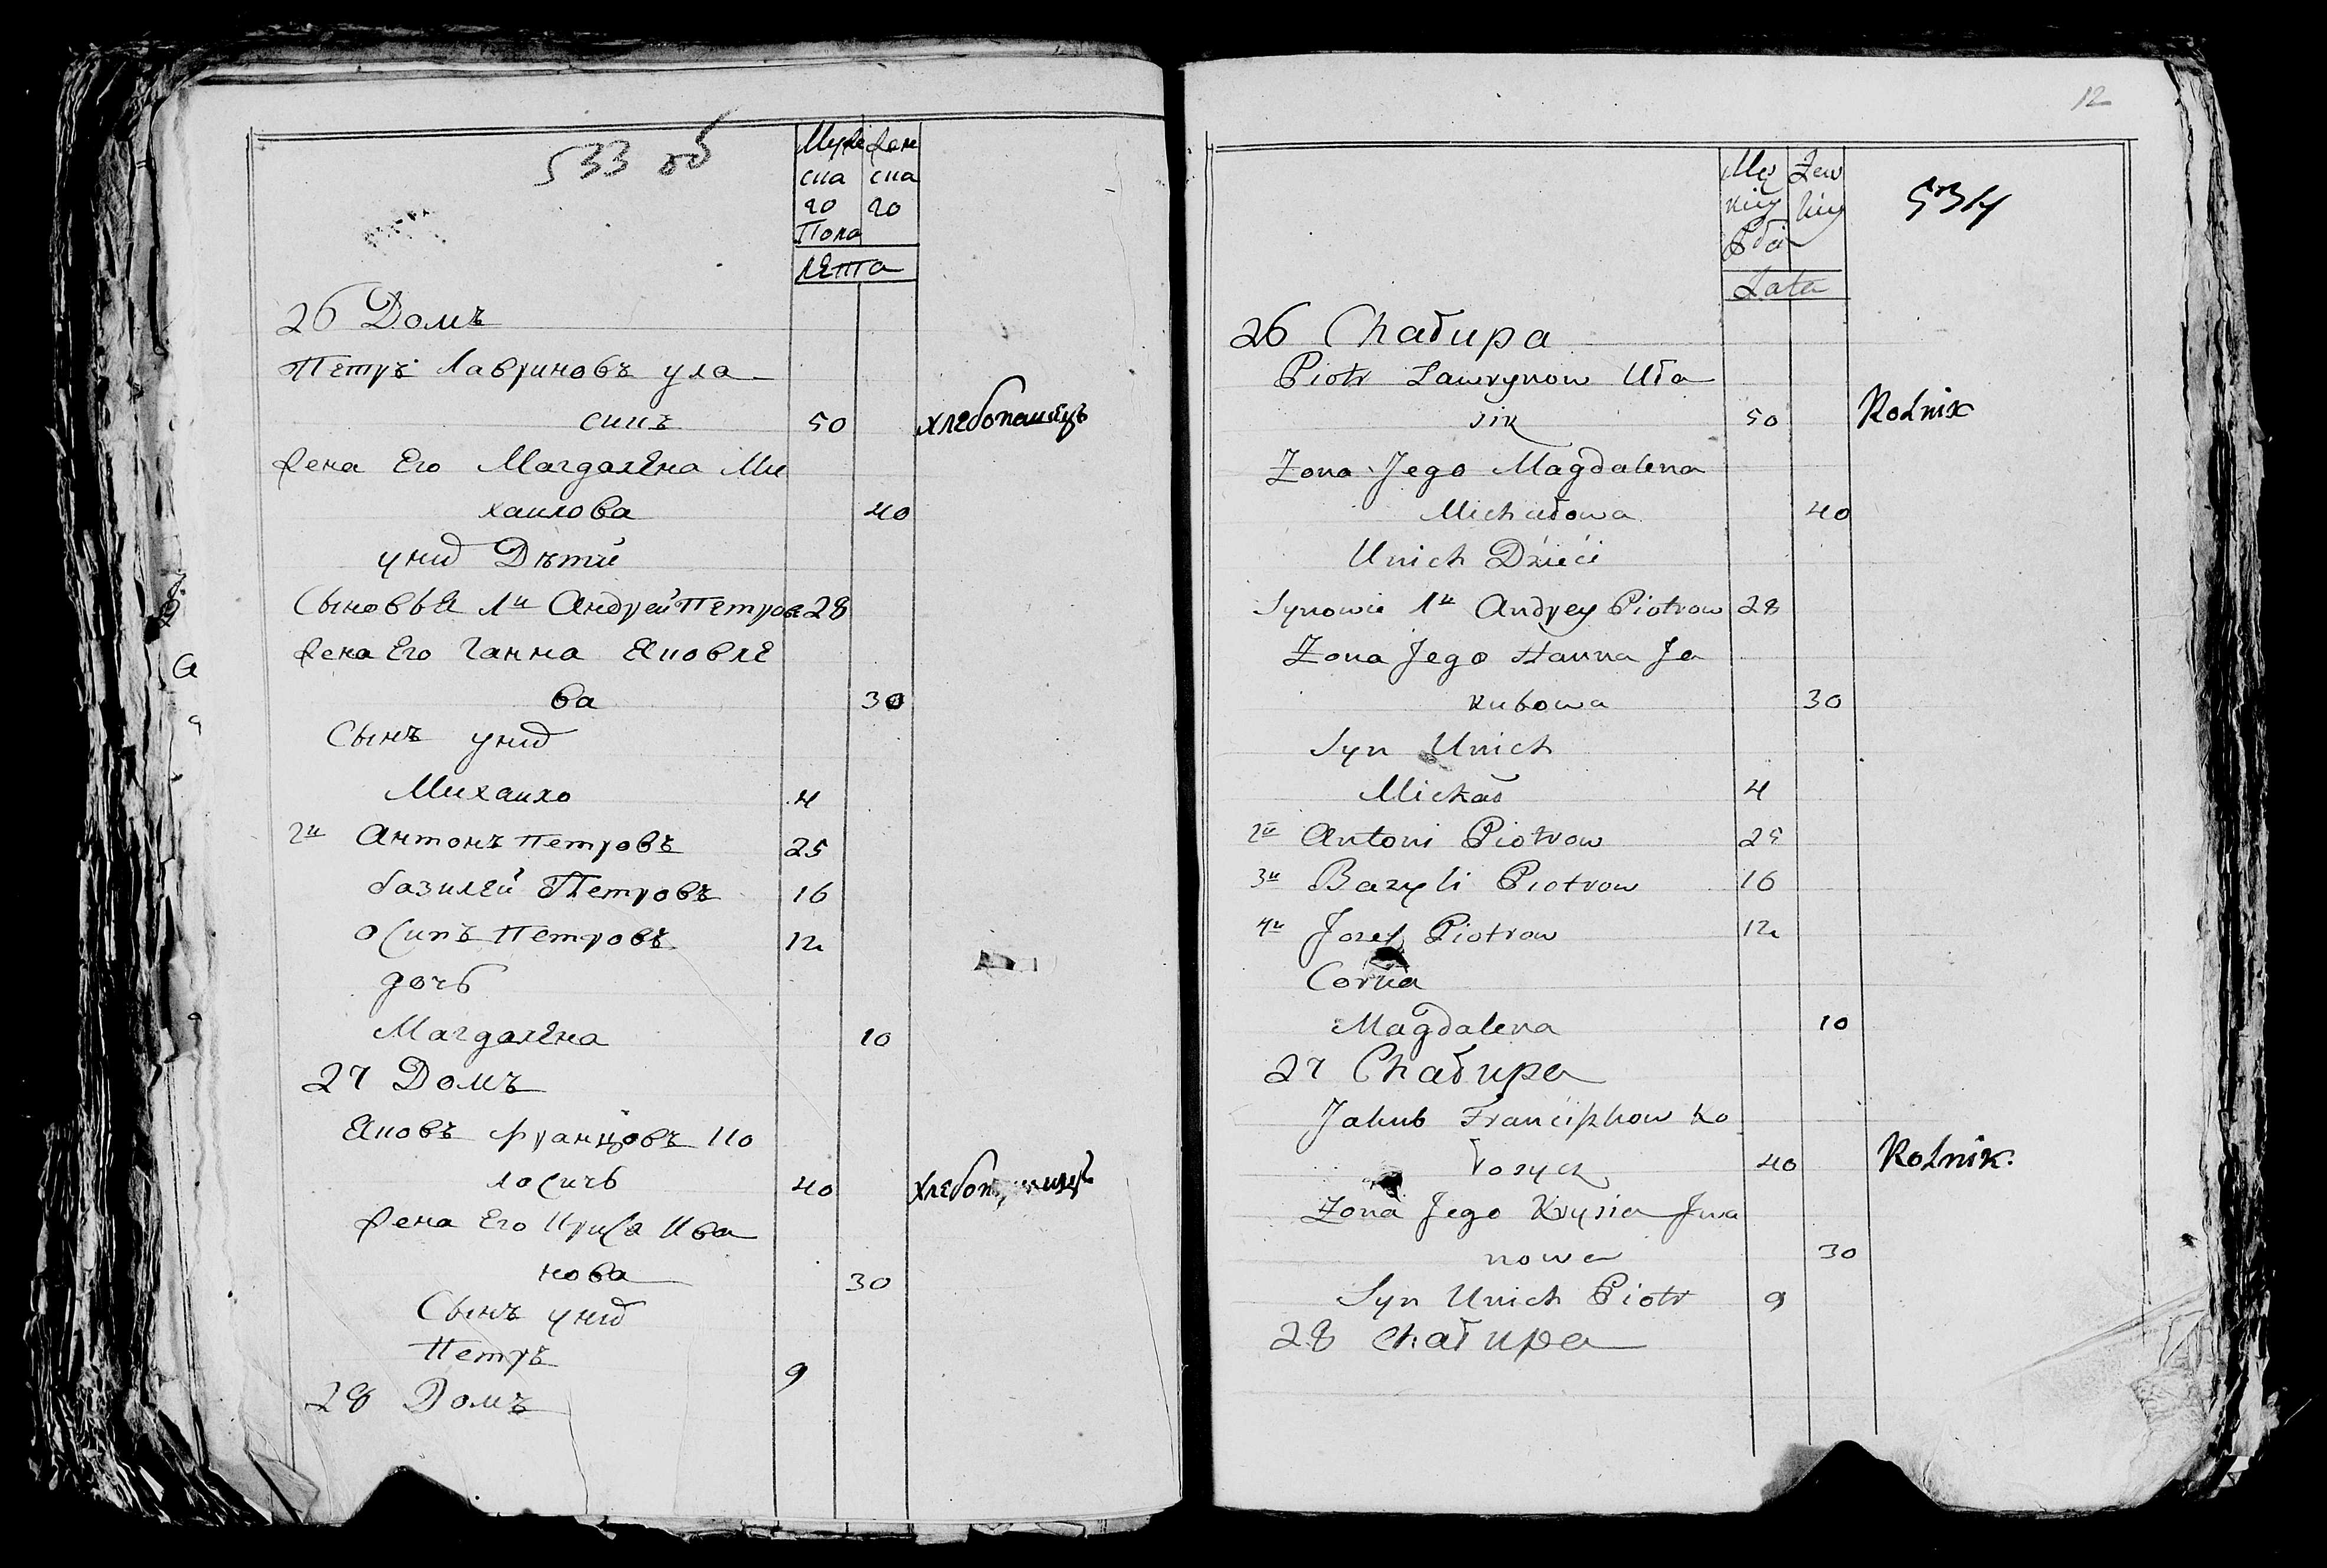 533 об
Мужеска го Пола
Женска го
лѣта
26 Домъ
Петръ Лавриновъ Ула
сикъ 50 хлебопашецъ
Жена Его Магдалена Ми
хаилова 40
у нид Дѣти
Сыновья 1й Андрей Петров 28
Жена Его Ганна Яковле
ва 30
Сынъ у нид
Михаило 4
2й Антонъ Петровъ 25
базилей Петровъ 16
осипъ Петровъ 12
дочь
Магдалена 10
27 Домъ
Яковъ францовъ Ко
лосичъ 40
Жена Его Крися Ива
нова 30
Сынъ у нид
Петръ 9
28 Домъ
12
534
Lata
26 Chałupa
Piotr Lawrynow Uła
sik 50 Rolnik
Zona Jego Magdalena
Michałowa 40
Unich Dzieci
Synowie 1й Andrey Piotrow 28
Zona Jego Hanna Ja
kubowa 30
Syn Unich
Michał 4
2й Antoni Piotrow 25
3й Bazyli Piotrow 16
4й Jozef Piotrow 12
Corka
Magdalena 10
27 Chałupa
Jakub Franciszkow Ko
łosycz 40 Rolnik.
Zona Jego Krysia Jwa
nowa 30
Syn Unich Piotr 9
28 Chałupa